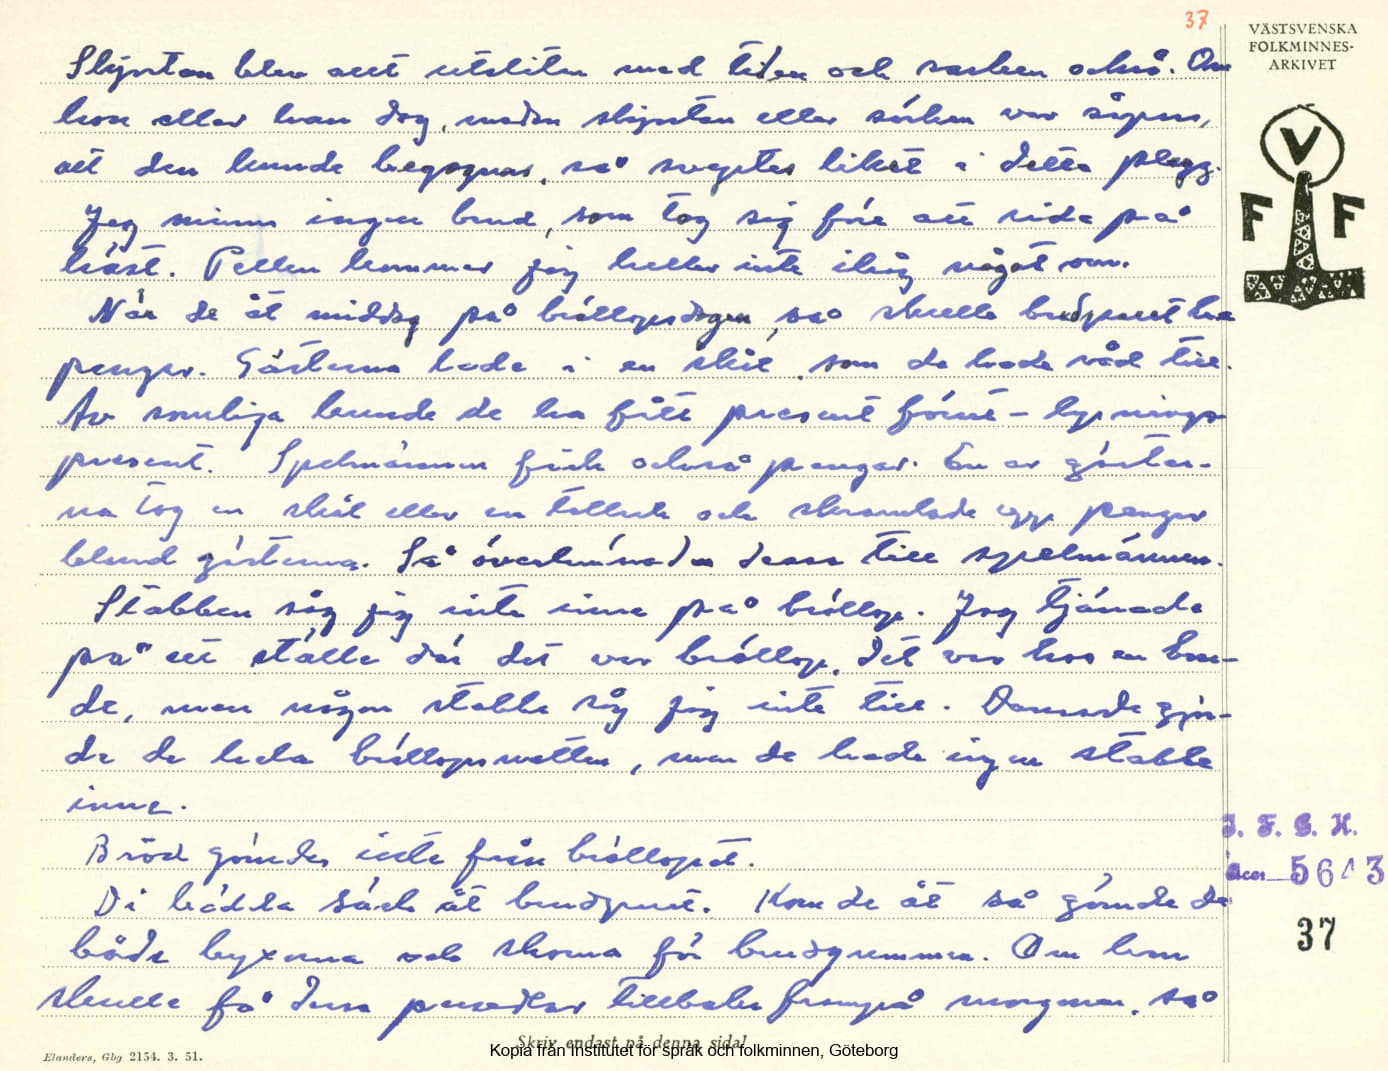 37
VÄSTSVENSKA
FOLKMINNES-
ARKIVET
V
F F
Skjortan blev allt utsliten med tiden och sarken också. Om
hon eller han dog, medan skjortan eller särken var såpass,
att den kunde begagnas, så sveptes liket i detta plagg.
Jag minns ingen brud, som tog sig före att rida på
häst. Pellen kommer jag heller inte ihåg något om.
När de åt middag på bröllopsdagen, så skulle brudparet ha
pengar. Gästerna lade i en skål, som de hade råd till.
Av somliga kunde de ha fått present förut - lysnings-
present. Spelmännen fick också pengar. En av gäster-
na tog en skål eller en tallrik och skramlade upp pengar
bland gästerna. Så överlämnades dessa till spelmännen.
Stabben såg jag inte inne på bröllop. Jag tjänade
på ett ställe där det var bröllop. Det var hos en bon-
de, men någon stabbe såg jag inte till. Dansade gjor-
de de hela bröllopsnatten, men de hade ingen stabbe
inne.
Bröd gömdes inte från bröllopet.
Di bädda säck åt brudparet. Kom de åt så gömde de
både byxerna och skorna för brudgummen. Om han
skulle få dessa persedlar tillbaka frampå morgonen, så
I. F. G. H.
Acc. 5643
37
Skriv endast på denna sida!
Elanders, Gbg 2154. 3. 51.
Kopia från Institutet för språk och folkminnen, Göteborg